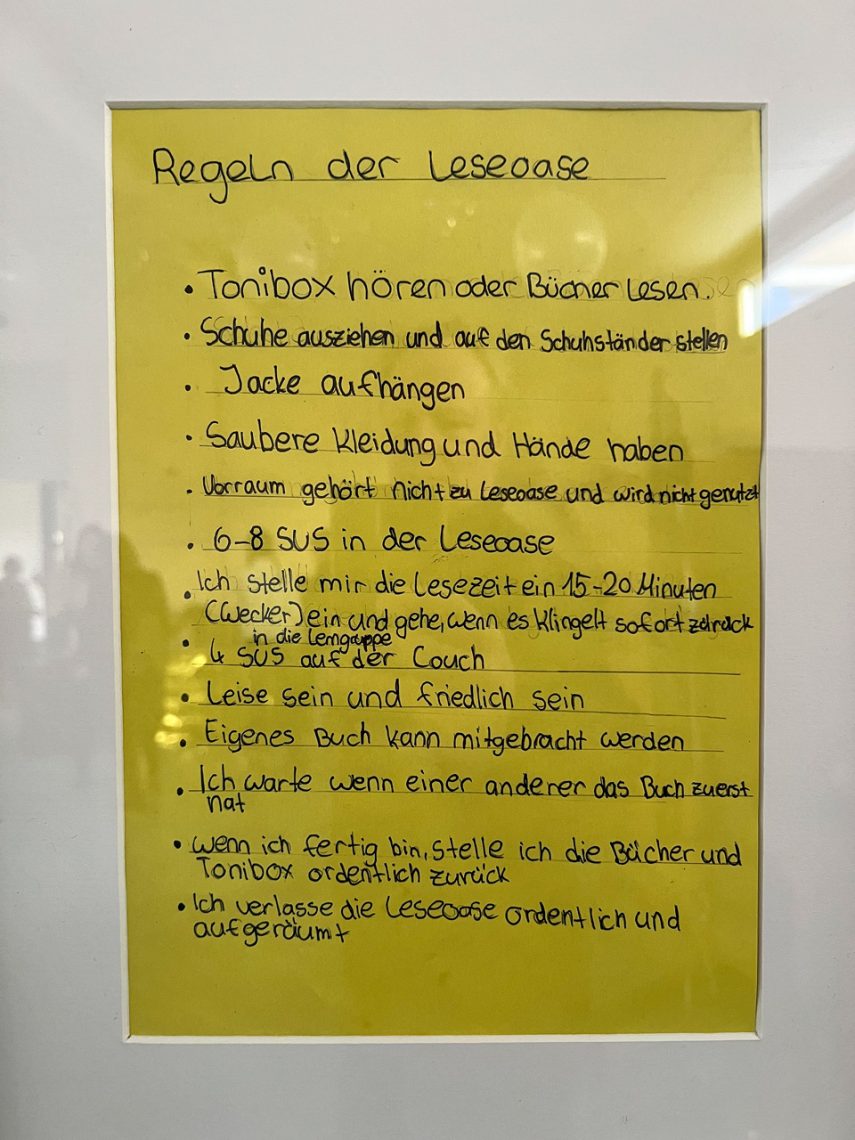 Regeln der Leseoase
• Tonibox hören oder Bücher lesen.
• Schuhe ausziehen und auf den Schuhständer stellen
• Jacke aufhängen
• Saubere Kleidung und Hände haben
• Vorraum gehört nicht zu Leseoase und wird nicht genutzt
• 6-8 SUS in der Leseoase
• Ich stelle mir die Lesezeit ein 15-20 Minuten
(Wecker) ein und gehe, wenn es klingelt sofort zurück
in die Lerngruppe
• 4 SUS auf der Couch
• Leise sein und friedlich sein
• Eigenes Buch kann mitgebracht werden
• Ich warte wenn einer anderer das Buch zuerst
hat
• wenn ich fertig bin, stelle ich die Bücher und
Tonibox ordentlich zurück
• Ich verlasse die Leseoase ordentlich und
aufgeräumt